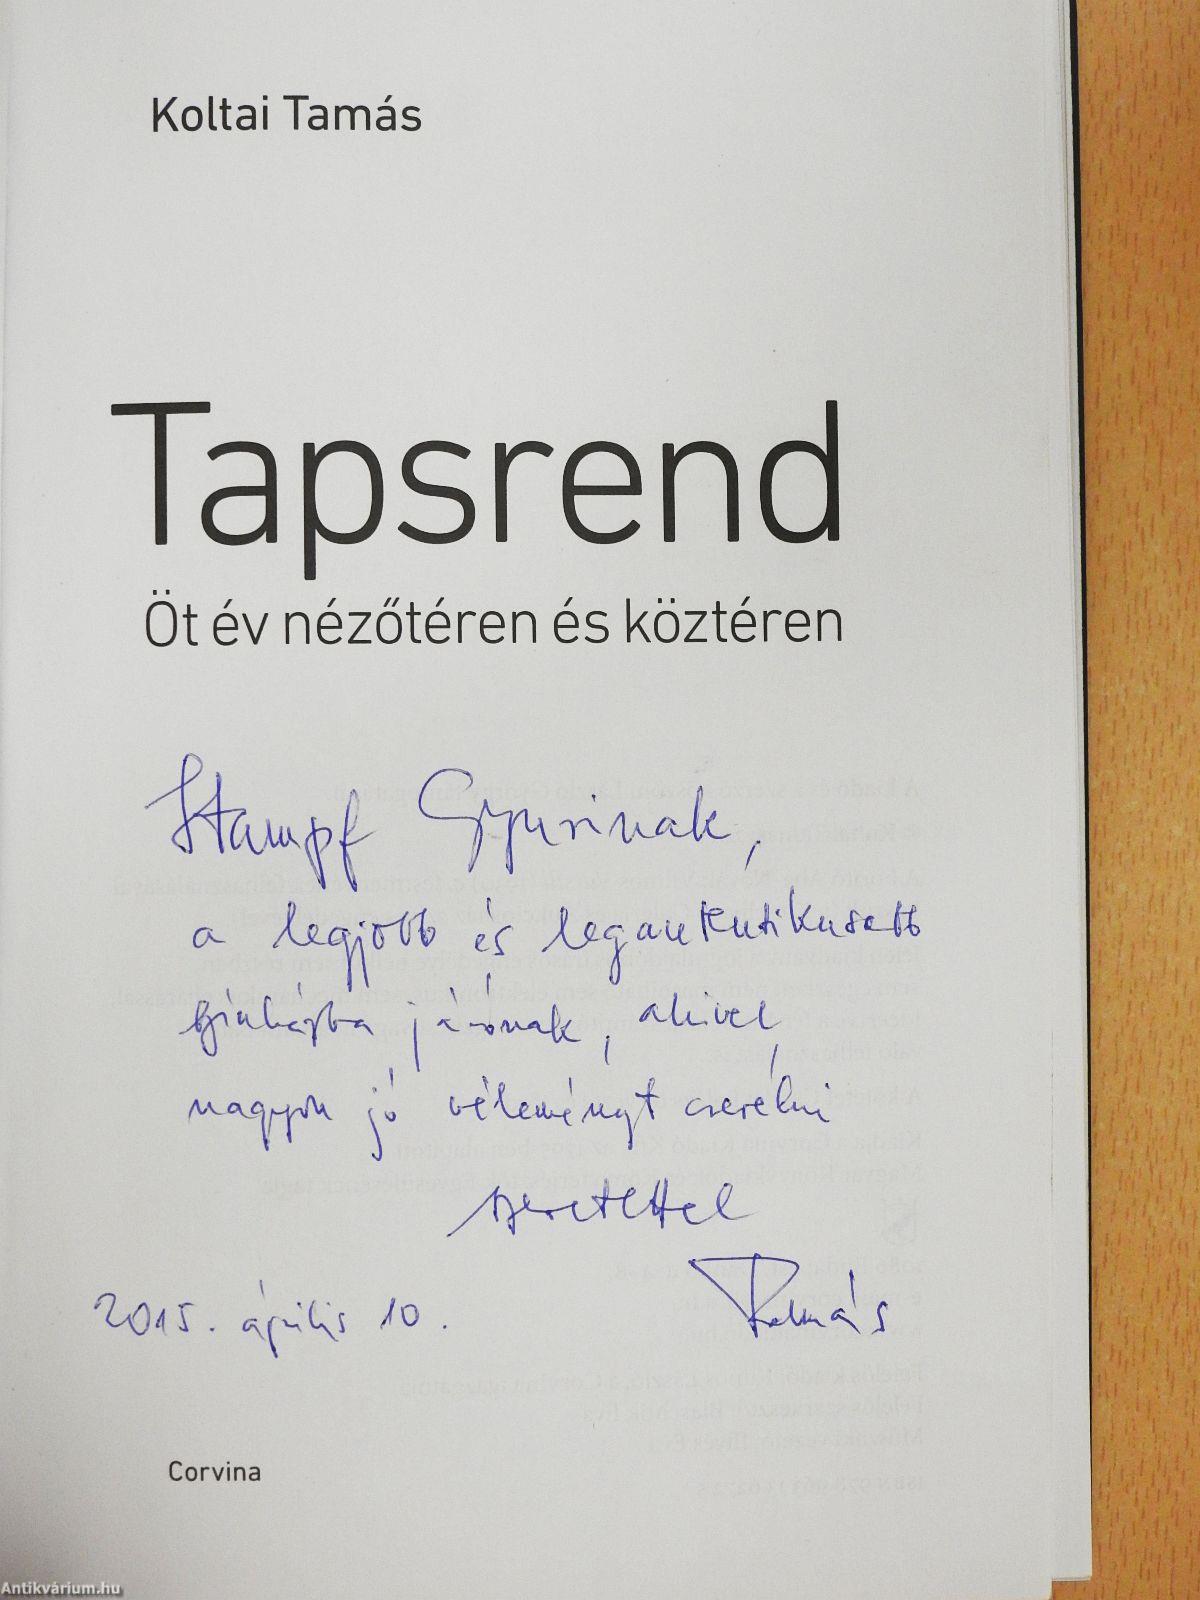 Koltai Tamás
Tapsrend
Öt év nézőtéren és köztéren
Stampf Gyurinak,
a legjobb és legautentikusabb
színházba járónak, akivel
nagyon jó véleményt cserélni
szeretettel
Tamás
2015. április 10.
Corvina
Antikvárium.hu